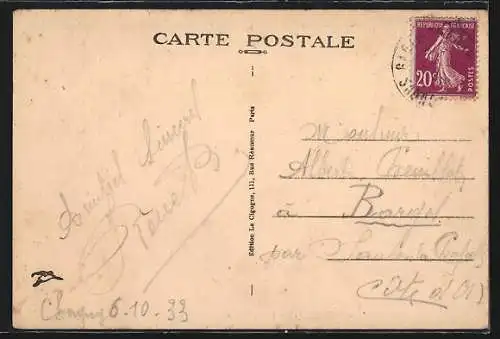 CARTE POSTALE
REPUBLIQUE FRANÇAISE
20c
POSTES
Amitiés Sincères
Edition La Cigogne, 111, Rue Réaumur - Paris
Monsieur
Albert
à Barges
par
(Côte d'Or)
6.10.33